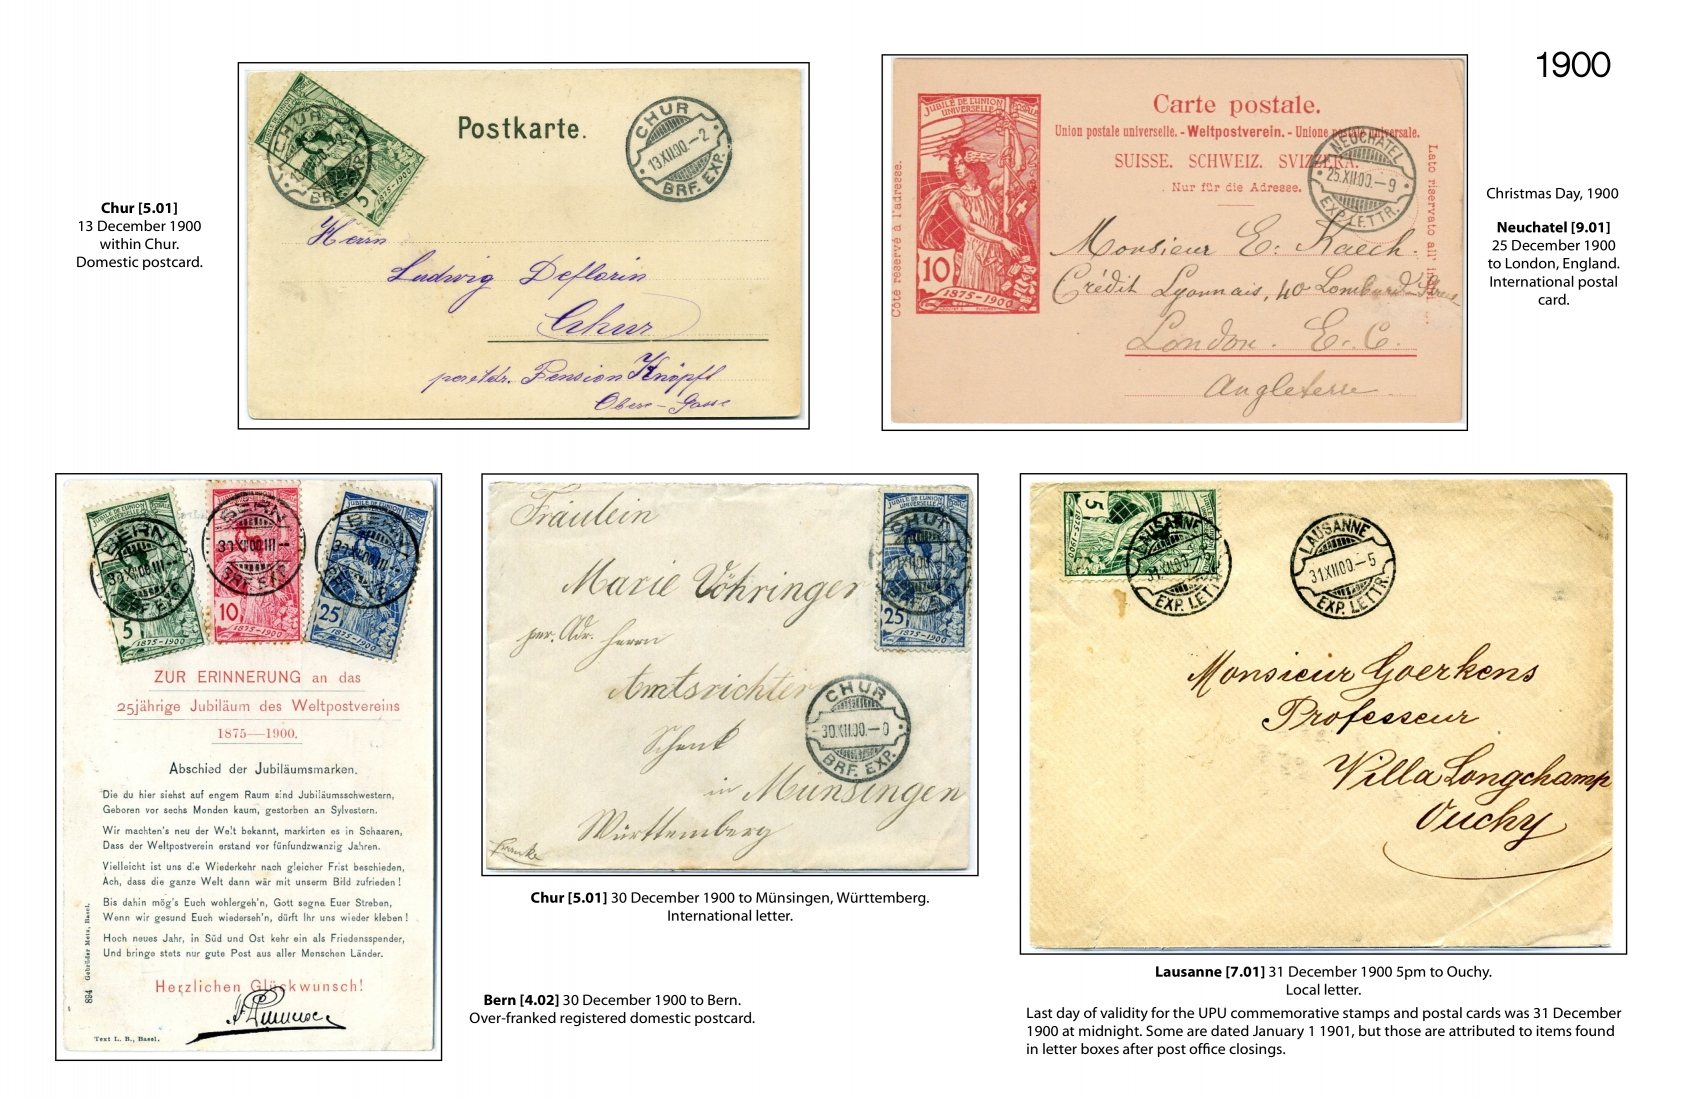 1900
Chur [5.01]
13 December 1900
within Chur.
Domestic postcard.
Postkarte.
CHUR
BRF.
5
1875-1900
CHUR
13.XII.00.–2
BRF. EXP.
Herrn
Ludwig Deflorin
Chur
Pension Knöpfl
Obere-Gasse
JUBILÉ DE L'UNION
UNIVERSELLE
10
1875-1900
Côté réservé à l'adresse.
Carte postale.
Union postale universelle. - Weltpostverein. - Unione postale universale.
SUISSE. SCHWEIZ. SVIZZERA.
Nur für die Adresse.
Lato riservato all'
NEUCHATEL
25.XII.00.–9
EXP. LETTR.
Monsieur E. Kaech.
Crédit Lyonnais, 40 Lombard Street
London. E. C.
Angleterre
Christmas Day, 1900
Neuchatel [9.01]
25 December 1900
to London, England.
International postal
card.
BERN
5
1875-1900
BERN
BRF. EXP.
10
1875-1900
BERN
25
1875-1900
ZUR ERINNERUNG an das
25jährige Jubiläum des Weltpostvereins
1875—1900.
Abschied der Jubiläumsmarken.
Die du hier siehst auf engem Raum sind Jubiläumsschwestern,
Geboren vor sechs Monden kaum, gestorben an Sylvestern.
Wir machten's neu der Welt bekannt, markirten es in Schaaren,
Dass der Weltpostverein erstand vor fünfundzwanzig Jahren.
Vielleicht ist uns die Wiederkehr nach gleicher Frist beschieden,
Ach, dass die ganze Welt dann wär mit unserm Bild zufrieden!
Bis dahin mög's Euch wohlergeh'n, Gott segne Euer Streben,
Wenn wir gesund Euch wiederseh'n, dürft Ihr uns wieder kleben!
Hoch neues Jahr, in Süd und Ost kehr ein als Friedensspender,
Und bringe stets nur gute Post aus aller Menschen Länder.
Herzlichen Glückwunsch!
894 Gebrüder Metz, Basel.
Text L. B., Basel.
Fräulein
Marie Vöhringer
per. Adr. Herrn
Amtsrichter
Schenk
in Münsingen
Württemberg
Franko
CHUR
25
1875-1900
CHUR
30.XII.00.–9
BRF. EXP.
Chur [5.01] 30 December 1900 to Münsingen, Württemberg.
International letter.
Bern [4.02] 30 December 1900 to Bern.
Over-franked registered domestic postcard.
5
LAUSANNE
EXP. LETTR.
LAUSANNE
31.XII.00.–5
EXP. LETTR.
Monsieur Goerkens
Professeur
Villa Longchamp
Ouchy
Lausanne [7.01] 31 December 1900 5pm to Ouchy.
Local letter.
Last day of validity for the UPU commemorative stamps and postal cards was 31 December
1900 at midnight. Some are dated January 1 1901, but those are attributed to items found
in letter boxes after post office closings.